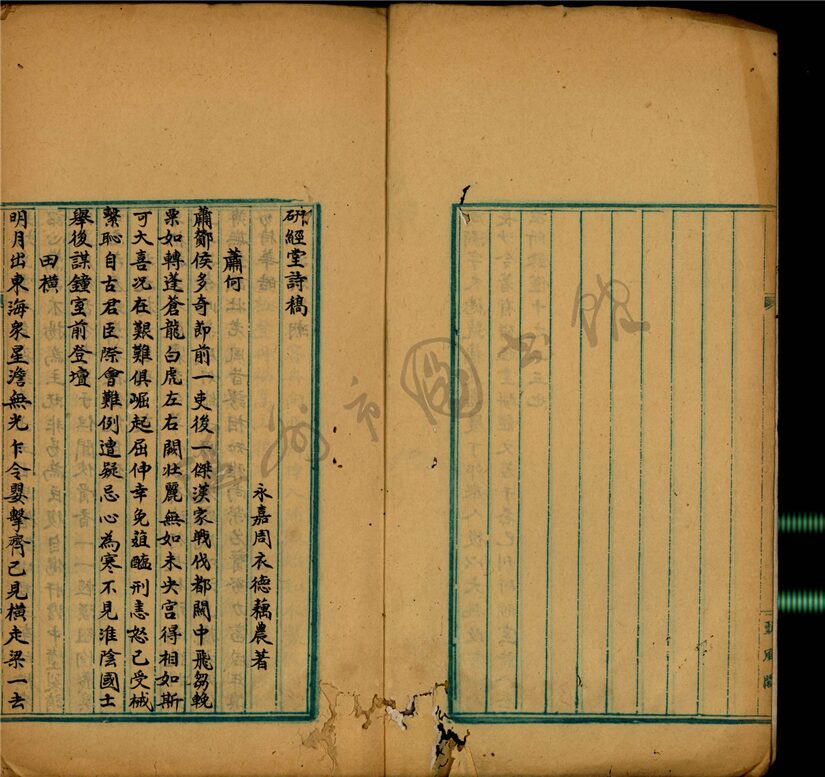 研經堂詩稿
永嘉周衣德藕農著
蕭何
蕭酇侯多奇節前一吏後一傑漢家戰伐都關中飛芻輓
粟如轉蓬蒼龍白虎左右闕壯麗無如未央宮得相如斯
可大喜况在艱難俱崛起屈伸幸免菹醢刑恚怒已受械
繫恥自古君臣際會難例遭疑忌心為寒不見淮陰國士
舉後謀鐘室前登壇
田橫
明月出東海眾星澹無光乍令嬰擊齊已見橫走梁一去
市圖